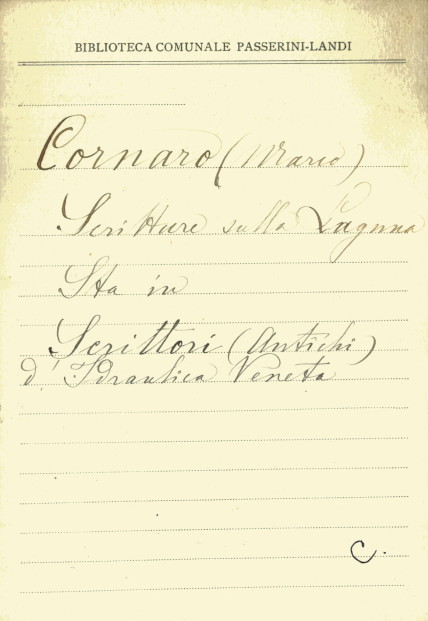 BIBLIOTECA COMUNALE PASSERINI-LANDI
Cornaro (Marco)
Scritture sulla Laguna
Sta in
Scrittori (Antichi)
d'Idraulica Veneta
C.